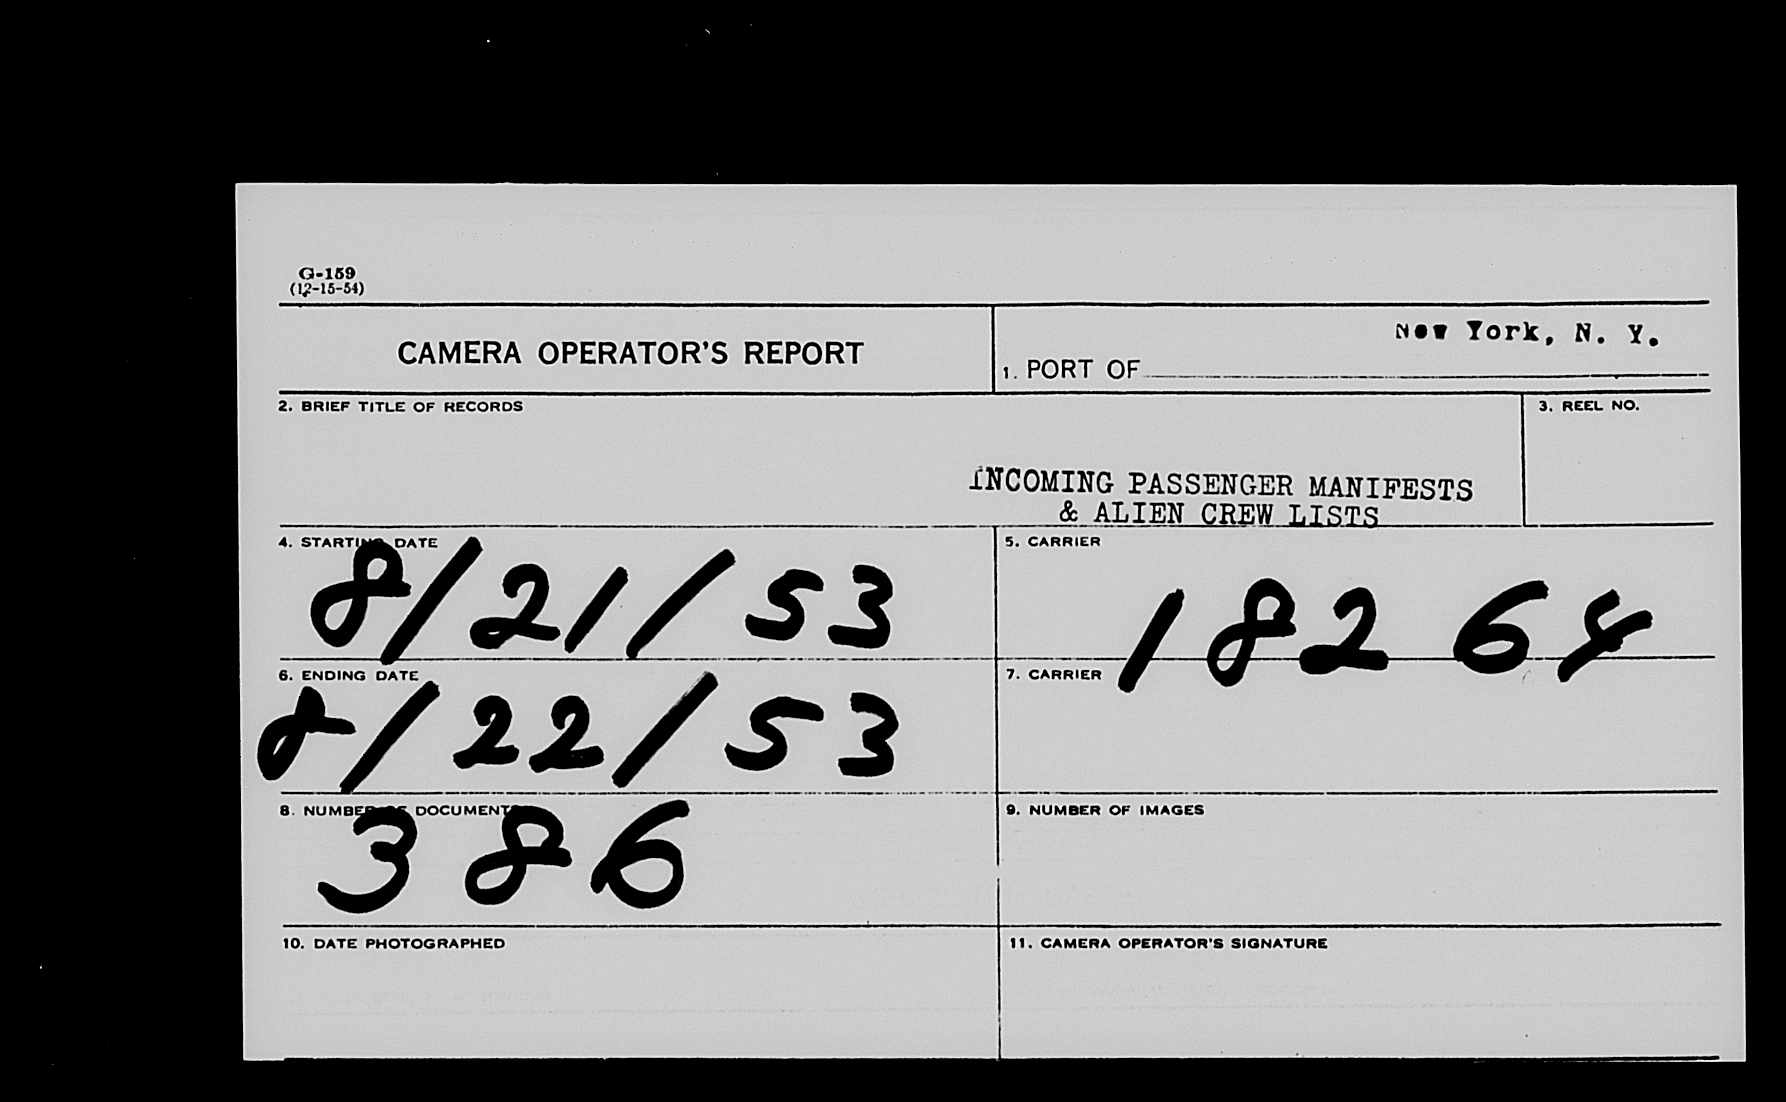 G-159
(12-15-54)
CAMERA OPERATOR'S REPORT
New York, N. Y.
1. PORT OF
2. BRIEF TITLE OF RECORDS
3. REEL NO.
INCOMING PASSENGER MANIFESTS
& ALIEN CREW LISTS
4. STARTING DATE
8/21/53
5. CARRIER
18264
6. ENDING DATE
8/22/53
7. CARRIER
8. NUMBER OF DOCUMENTS
386
9. NUMBER OF IMAGES
10. DATE PHOTOGRAPHED
11. CAMERA OPERATOR'S SIGNATURE